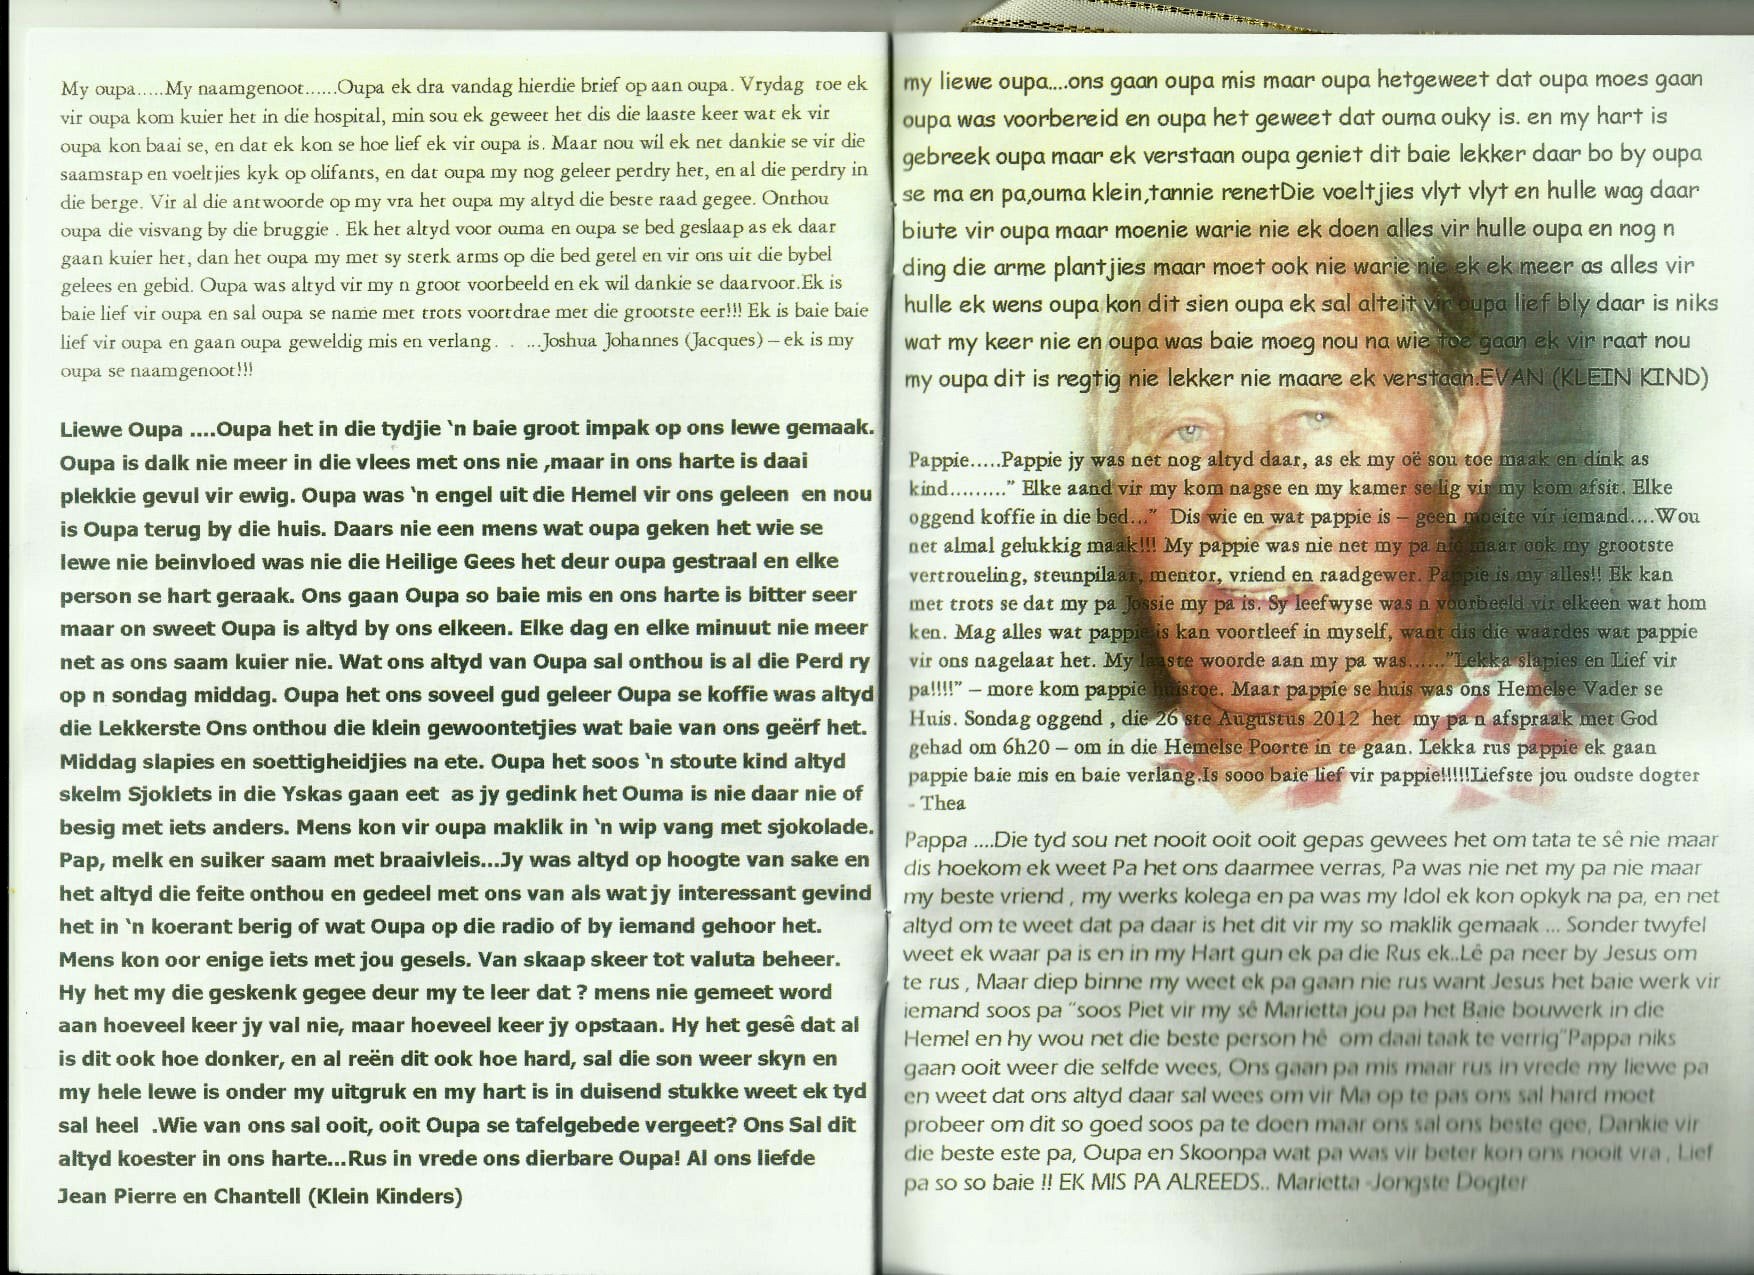 My oupa.....My naamgenoot......Oupa ek dra vandag hierdie brief op aan oupa. Vrydag toe ek
vir oupa kom kuier het in die hospital, min sou ek geweet het dis die laaste keer wat ek vir
oupa kon baai se, en dat ek kon se hoe lief ek vir oupa is. Maar nou wil ek net dankie se vir die
saamstap en voeltjies kyk op olifants, en dat oupa my nog geleer perdry het, en al die perdry in
die berge. Vir al die antwoorde op my vra het oupa my altyd die beste raad gegee. Onthou
oupa die visvang by die bruggie . Ek het altyd voor ouma en oupa se bed geslaap as ek daar
gaan kuier het, dan het oupa my met sy sterk arms op die bed getel en vir ons uit die bybel
gelees en gebid. Oupa was altyd vir my n groot voorbeeld en ek wil dankie se daarvoor.Ek is
baie lief vir oupa en sal oupa se name met trots voortdrae met die grootste eer!!! Ek is baie baie
lief vir oupa en gaan oupa geweldig mis en verlang. . ...Joshua Johannes (Jacques) – ek is my
oupa se naamgenoot!!!
Liewe Oupa ....Oupa het in die tydjie 'n baie groot impak op ons lewe gemaak.
Oupa is dalk nie meer in die vlees met ons nie ,maar in ons harte is daai
plekkie gevul vir ewig. Oupa was 'n engel uit die Hemel vir ons geleen en nou
is Oupa terug by die huis. Daars nie een mens wat oupa geken het wie se
lewe nie beinvloed was nie die Heilige Gees het deur oupa gestraal en elke
person se hart geraak. Ons gaan Oupa so baie mis en ons harte is bitter seer
maar on sweet Oupa is altyd by ons elkeen. Elke dag en elke minuut nie meer
net as ons saam kuier nie. Wat ons altyd van Oupa sal onthou is al die Perd ry
op n sondag middag. Oupa het ons soveel gud geleer Oupa se koffie was altyd
die Lekkerste Ons onthou die klein gewoontetjies wat baie van ons geërf het.
Middag slapies en soettigheidjies na ete. Oupa het soos 'n stoute kind altyd
skelm Sjoklets in die Yskas gaan eet as jy gedink het Ouma is nie daar nie of
besig met iets anders. Mens kon vir oupa maklik in 'n wip vang met sjokolade.
Pap, melk en suiker saam met braaivleis...Jy was altyd op hoogte van sake en
het altyd die feite onthou en gedeel met ons van als wat jy interessant gevind
het in 'n koerant berig of wat Oupa op die radio of by iemand gehoor het.
Mens kon oor enige iets met jou gesels. Van skaap skeer tot valuta beheer.
Hy het my die geskenk gegee deur my te leer dat ? mens nie gemeet word
aan hoeveel keer jy val nie, maar hoeveel keer jy opstaan. Hy het gesê dat al
is dit ook hoe donker, en al reën dit ook hoe hard, sal die son weer skyn en
my hele lewe is onder my uitgruk en my hart is in duisend stukke weet ek tyd
sal heel .Wie van ons sal ooit, ooit Oupa se tafelgebede vergeet? Ons Sal dit
altyd koester in ons harte...Rus in vrede ons dierbare Oupa! Al ons liefde
Jean Pierre en Chantell (Klein Kinders)
my liewe oupa....ons gaan oupa mis maar oupa hetgeweet dat oupa moes gaan
oupa was voorbereid en oupa het geweet dat ouma ouky is. en my hart is
gebreek oupa maar ek verstaan oupa geniet dit baie lekker daar bo by oupa
se ma en pa,ouma klein,tannie renetDie voeltjies vlyt vlyt en hulle wag daar
biute vir oupa maar moenie warie nie ek doen alles vir hulle oupa en nog n
ding die arme plantjies maar moet ook nie warie nie ek ek meer as alles vir
hulle ek wens oupa kon dit sien oupa ek sal alteit vir oupa lief bly daar is niks
wat my keer nie en oupa was baie moeg nou na wie toe gaan ek vir raat nou
my oupa dit is regtig nie lekker nie maare ek verstaan.EVAN (KLEIN KIND)
Pappie.....Pappie jy was net nog altyd daar, as ek my oë sou toe maak en dink as
kind.........” Elke aand vir my kom nagse en my kamer se lig vir my kom afsit. Elke
oggend koffie in die bed...” Dis wie en wat pappie is – geen moeite vir iemand....Wou
net almal gelukkig maak!!! My pappie was nie net my pa nie maar ook my grootste
vertroueling, steunpilaar, mentor, vriend en raadgewer. Pappie is my alles!! Ek kan
met trots se dat my pa Jossie my pa is. Sy leefwyse was n voorbeeld vir elkeen wat hom
ken. Mag alles wat pappie is kan voortleef in myself, want dis die waardes wat pappie
vir ons nagelaat het. My laaste woorde aan my pa was......”Lekka slapies en Lief vir
pa!!!!” – more kom pappie huistoe. Maar pappie se huis was ons Hemelse Vader se
Huis. Sondag oggend , die 26 ste Augustus 2012 het my pa n afspraak met God
gehad om 6h20 – om in die Hemelse Poorte in te gaan. Lekka rus pappie ek gaan
pappie baie mis en baie verlang.Is sooo baie lief vir pappie!!!!!Liefste jou oudste dogter
- Thea
Pappa ....Die tyd sou net nooit ooit ooit gepas gewees het om tata te sê nie maar
dis hoekom ek weet Pa het ons daarmee verras, Pa was nie net my pa nie maar
my beste vriend , my werks kolega en pa was my Idol ek kon opkyk na pa, en net
altyd om te weet dat pa daar is het dit vir my so maklik gemaak ... Sonder twyfel
weet ek waar pa is en in my Hart gun ek pa die Rus ek..Lê pa neer by Jesus om
te rus , Maar diep binne my weet ek pa gaan nie rus want Jesus het baie werk vir
iemand soos pa “soos Piet vir my sê Marietta jou pa het Baie bouwerk in die
Hemel en hy wou net die beste person hê om daai taak te verrig”Pappa niks
gaan ooit weer die selfde wees, Ons gaan pa mis maar rus in vrede my liewe pa
en weet dat ons altyd daar sal wees om vir Ma op te pas ons sal hard moet
probeer om dit so goed soos pa te doen maar ons sal ons beste gee, Dankie vir
die beste este pa, Oupa en Skoonpa wat pa was vir beter kon ons nooit vra , Lief
pa so so baie !! EK MIS PA ALREEDS.. Marietta -Jongste Dogter